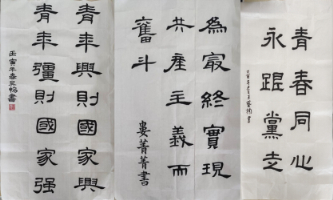 青年興則國家興
青年彊則國家强
壬寅年春書
為最終實現
共產主義而
奮斗
婁菁菁書
青春同心
永跟黨走